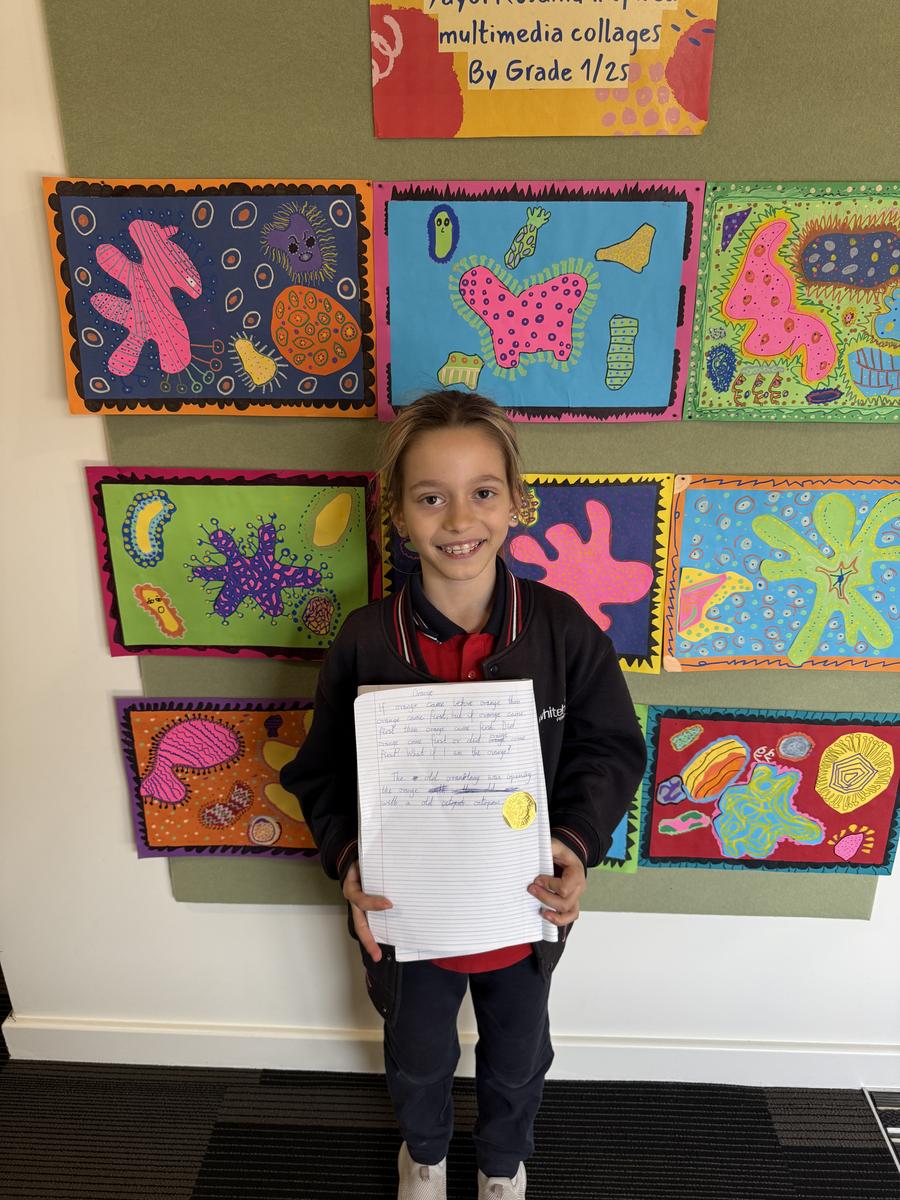 multimedia collages
By Grade 1/2s
Orange
If orange came before orange then
orange came first, but if orange came
first then orange came first. Did
orange came first or did orange came
first. What if I am the orange?
The old orangutang was opening
the orange
with a old octopus.